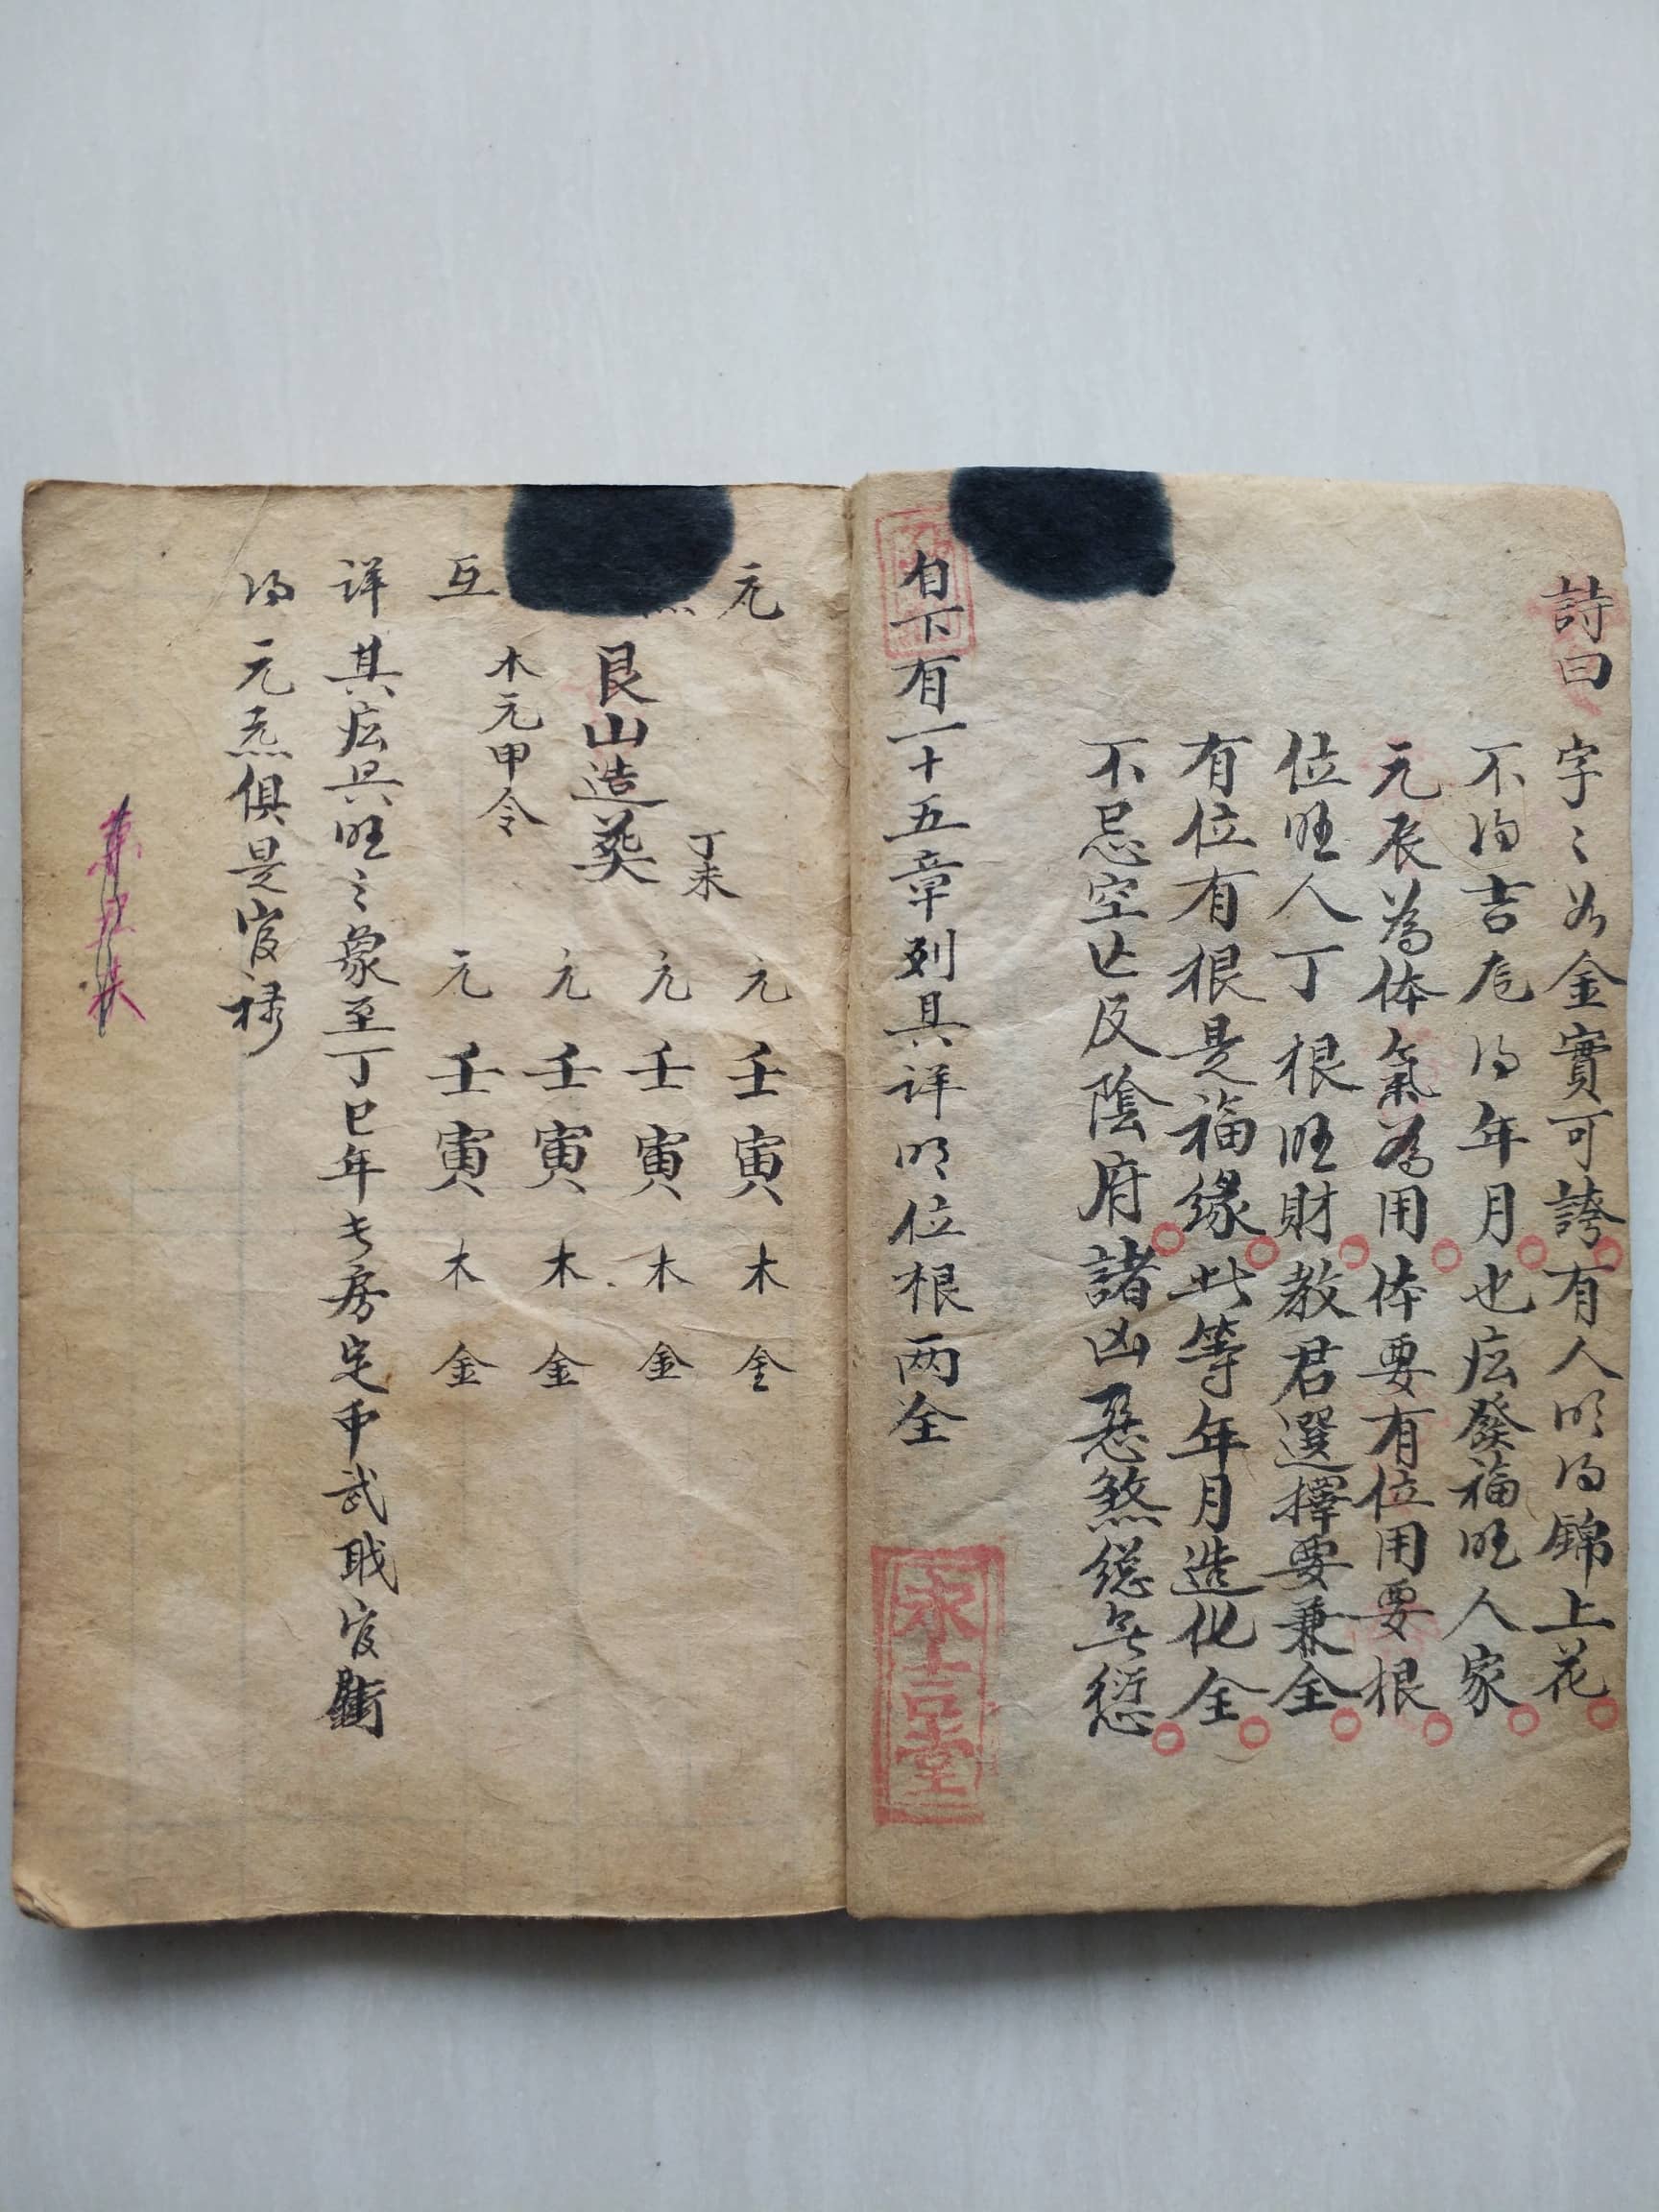 詩曰
字〻如金實可誇有人明得錦上花
不得吉 得年月也应發福旺人家
元辰為体氣為用体要有位用要根
位旺人丁根旺財教君選擇要兼全
有位有根是福缘此等年月造化全
不忌空亡及陰府諸凶惡煞總無愆
自下有一十五章列具详明位根两全
永吉堂
元
丁未
艮山造葬
木元甲令
互
元壬寅木金
元壬寅木金
元壬寅木金
元壬寅木金
详其应具旺〻象至丁巳年長房 中武职官
得元炁俱是官禄